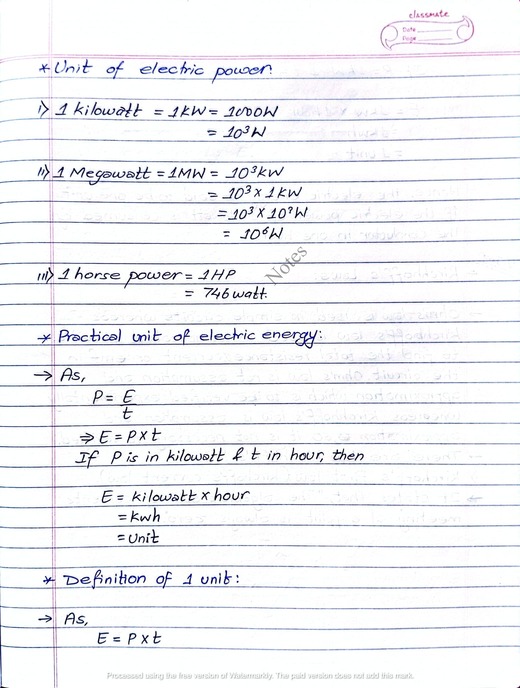 classmate
Date
Page
* Unit of electric power:
i) 1 kilowatt = 1KW = 1000W
= 10³W
ii) 1 Megawatt = 1MW = 10³kW
= 10³ x 1kW
= 10³ X 10³W
= 10⁶W
Notes
iii) 1 horse power = 1HP
= 746 watt.
* Practical unit of electric energy:
→ As,
P = E
t
⇒ E = P x t
If P is in kilowatt & t in hour, then
E = kilowatt x hour
= kwh
= unit
* Definition of 1 unit:
→ As,
E = P x t
Processed using the free version of Watermarkly. The paid version does not add this mark.